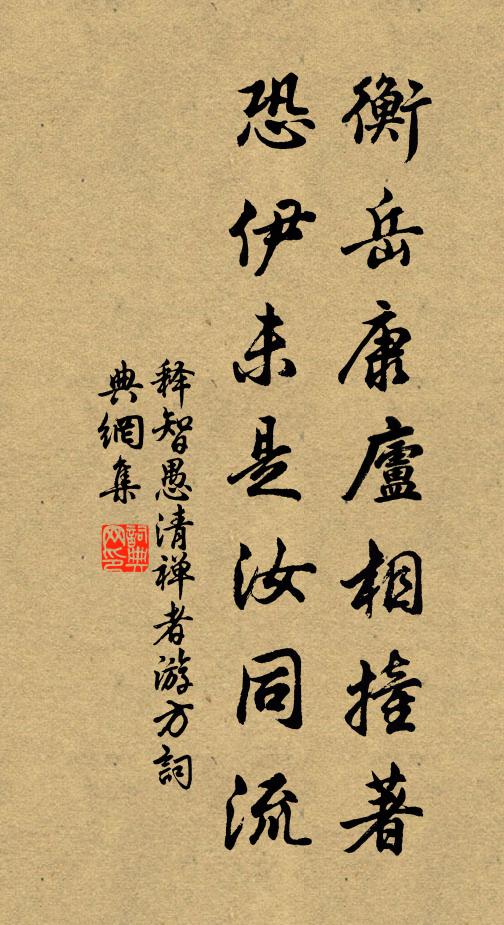 衡岳康廬相撞著
恐伊未是汝同流
释智愚清禅者游方詞
典網集
詞典网印